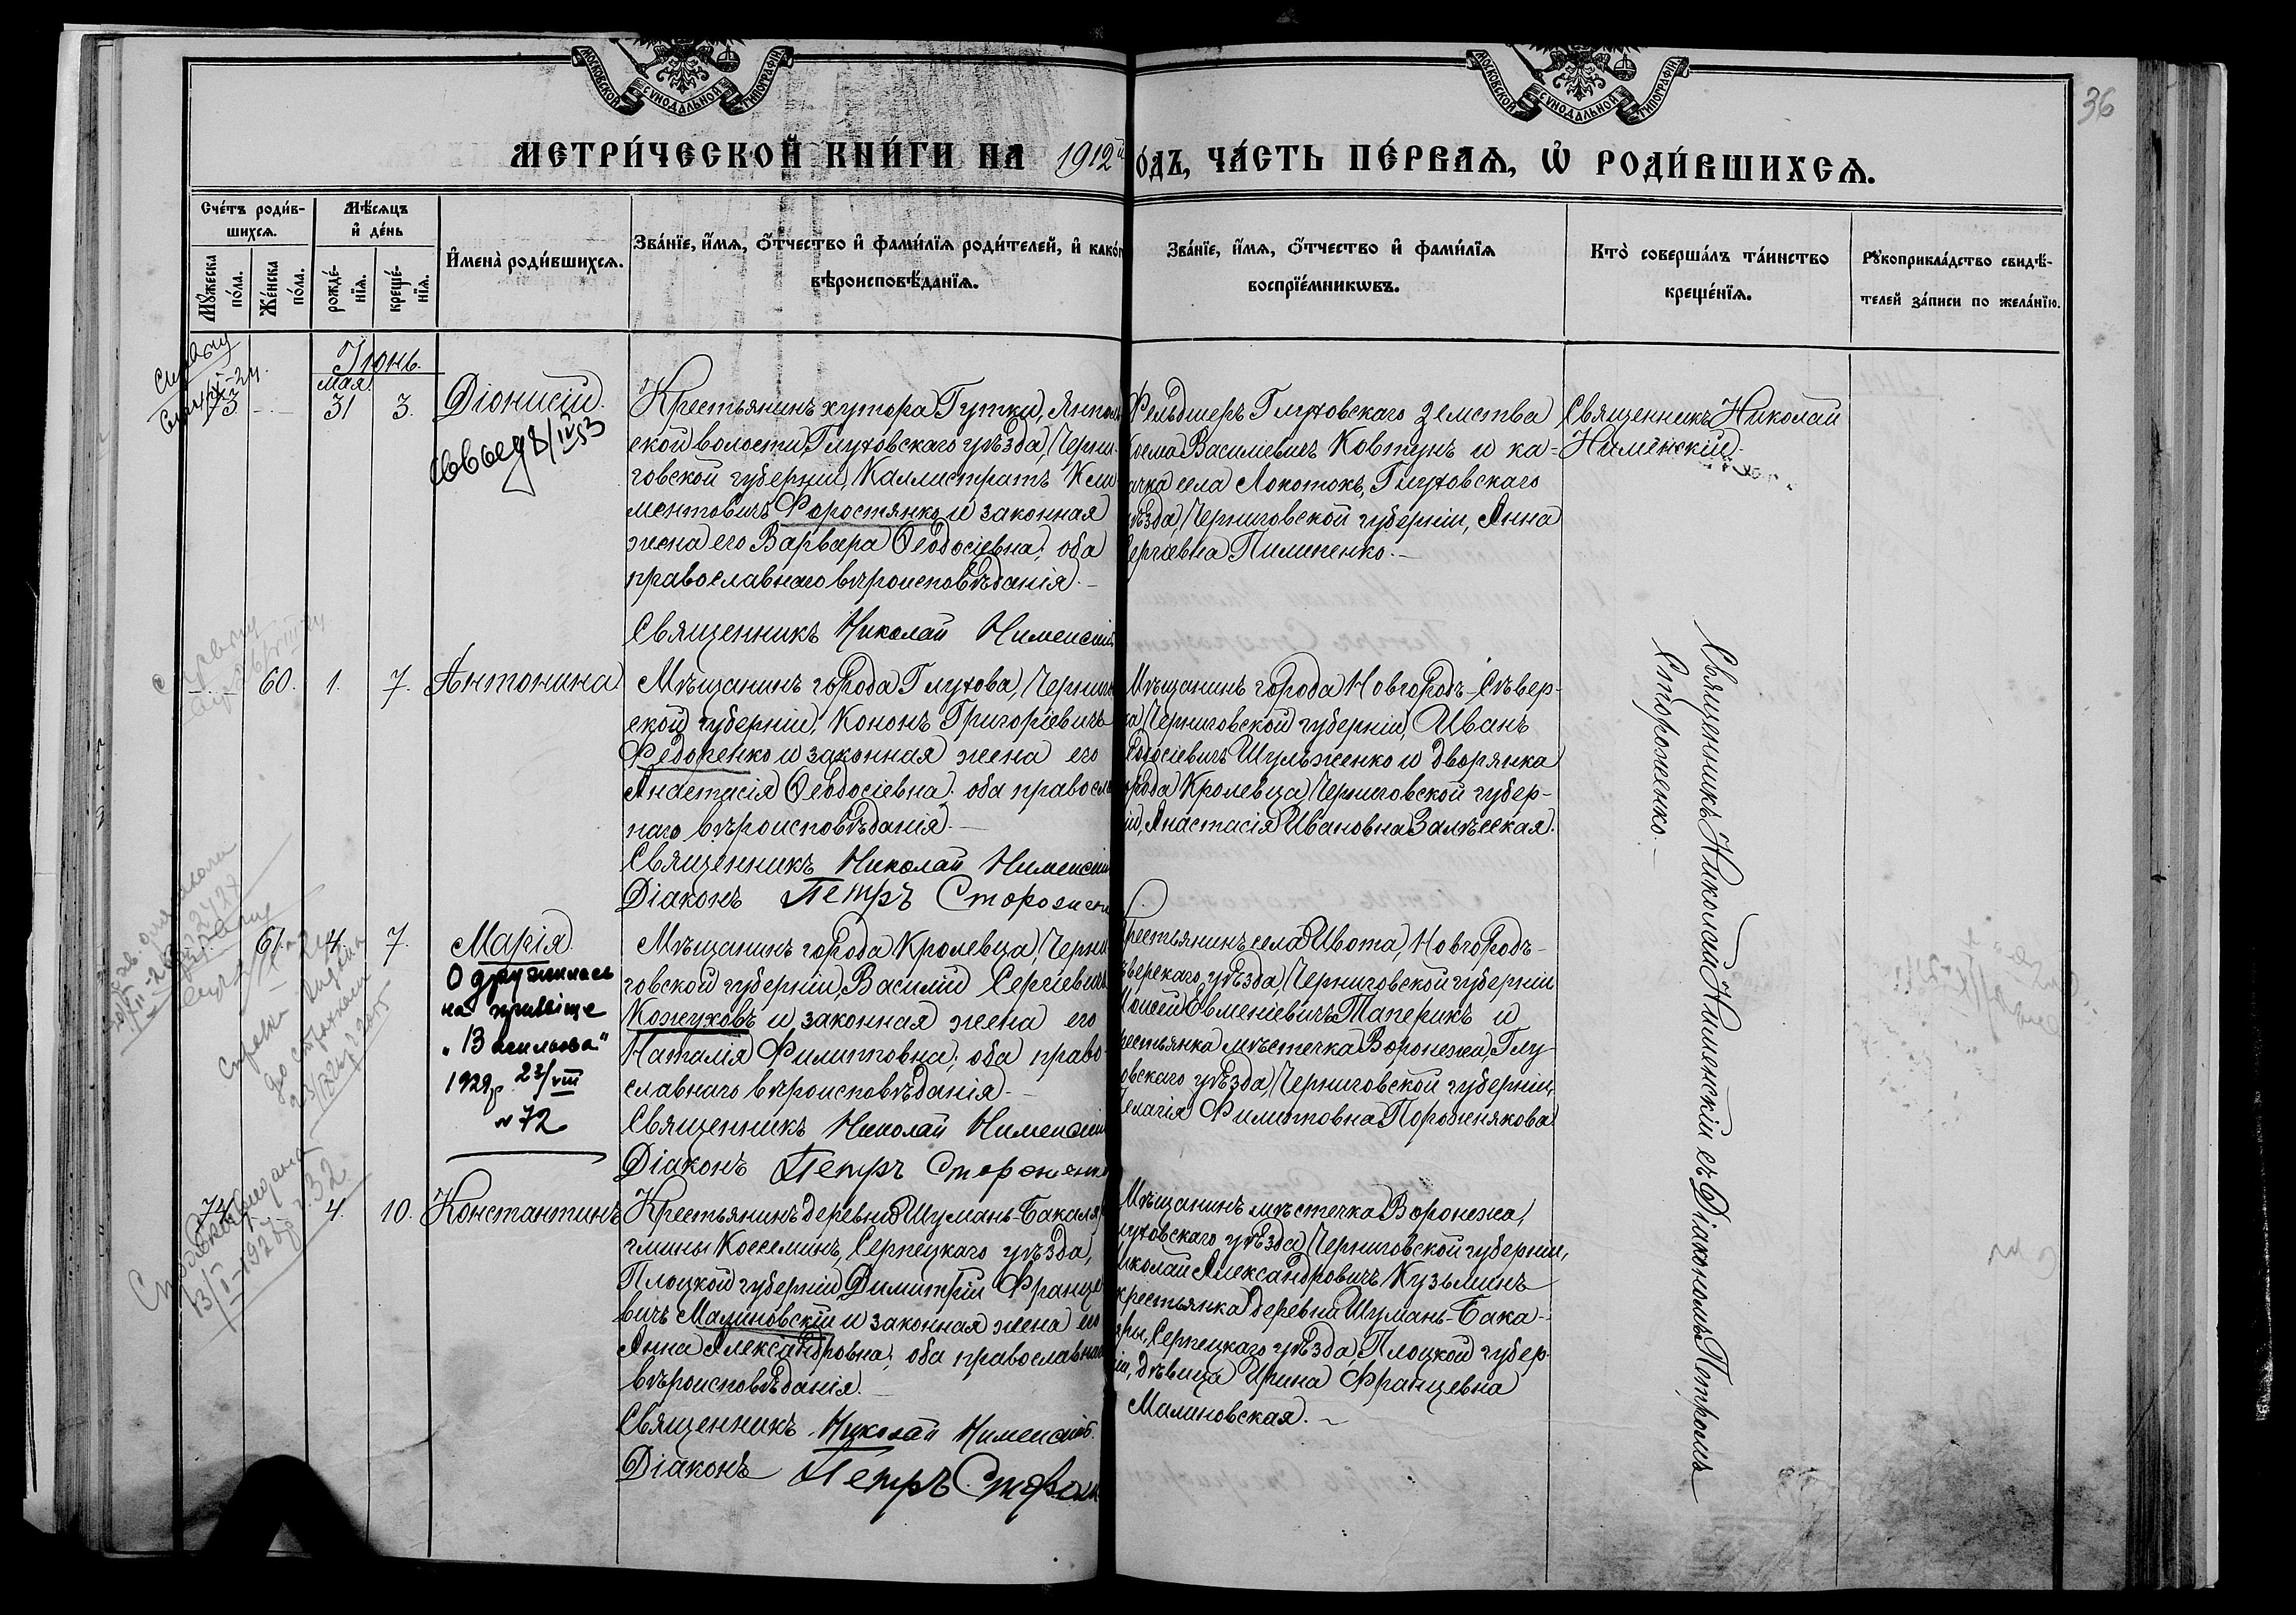 МОСКОВСКОЙ СУНОДАЛЬНОЙ ТИПОГРАФІИ
МОСКОВСКОЙ СУНОДАЛЬНОЙ ТИПОГРАФІИ
36
МЕТРИ́ЧЕСКОЙ КНИ́ГИ НА 1912й
О́ДЪ, ЧА́СТЬ ПЕ́РВАѦ, Ѡ҆ РОДИ́ВШИХСѦ.
Сче́тъ роди́в-
шихсѧ.
Мꙋ́жеска по́ла.
Же́нска по́ла.
Мѣ́сѧцъ
и҆ де́нь
рожде́-нїѧ.
креще́-нїѧ.
И҆мена̀ роди́вшихсѧ.
Зва́нїе, и҆́мѧ, ѻ҆́тчество и҆ фами́лїѧ роди́телей, и҆ како́г
вѣроисповѣ́данїѧ.
Зва́нїе, и҆́мѧ, ѻ҆́тчество и҆ фами́лїѧ
воспрїе́мникѡвъ.
Кто̀ соверша́лъ та́инство
креще́нїѧ.
Рꙋкоприкла́дство свидѣ́-
телей за́писи по жела́нїю.
Іюнь.
мая
73 31 3. Діонисій.
Крестьянинъ хутора Гутки, Ямпол
ской волости, Глуховскаго уѣзда, Черни-
говской губерніи, Каллистратъ Кли
ментовичъ Форостянко и законная
жена его Варвара Ѳеодосіевна; оба
православнаго вѣроисповѣданія.—
Священникъ Николай Нименскій
Фельдшеръ Глуховскаго земства
Косма Василіевичъ Ковтунъ и ка-
ачка села Локотокъ, Глуховскаго
уѣзда, Черниговской губерніи, Анна
ергіевна Пилипенко.—
Священникъ Николай
Нименскій.
60. 1. 7. Антонина
Мѣщанинъ города Глухова, Чернигов
ской губерніи, Кононъ Григоріевичъ
Федоренко и законная жена его
Анастасія Ѳеодосіевна; оба правосла
наго вѣроисповѣданія.—
Священникъ Николай Нименскій
Діаконъ Петръ Стороженк
Мѣщанинъ города Новгородъ-Сѣвер-
ка, Черниговской губерніи, Иванъ
Ѳеодосіевичъ Шульженко и дворянка
орода Кролевца, Черниговской губер-
іи, Анастасія Ивановна Залѣсская.
61. 4. 7. Марія.
Одружилась
на прізвіще
"Васильова"
1929р. 23/VIII
N 72
Мѣщанинъ города Кролевца, Черни
говской губерніи, Василій Сергіевичъ
Кожуховъ и законная жена его
Наталія Филипповна; оба право-
славнаго вѣроисповѣданія.—
Священникъ Николай Нименскій
Діаконъ Петръ Стороженк
рестьянинъ села Ивота, Новгородъ-
ѣверскаго уѣзда, Черниговской губерніи
Моисей Евменіевичъ Таперикъ и
рестьянка мѣстечка Воронежа, Глу-
овскаго уѣзда, Черниговской губерніи,
елагія Филипповна Пороженякова
Священникъ Николай Нименскій съ Діакономъ Петромъ
Стороженко.—
74. 4. 10. Константинъ
Крестьянинъ деревни Шумань-Бакаля
гмины Коссеминъ, Серпецкаго уѣзда,
Плоцкой губерніи Димитрій Францe
вичъ Малиновскій и законная жена его
Анна Александровна; оба православнаго
вѣроисповѣданія.—
Священникъ Николай Нименскій.
Діаконъ Петръ Сторож
Мѣщанинъ мѣстечка Воронежа,
луховскаго уѣзда, Черниговской губерніи,
иколай Александровичъ Кузьминъ
крестьянка деревни Шумань-Бака-
яры, Серпецкаго уѣзда, Плоцкой губер-
іи, дѣвица Ирина Францевна
Малиновская.